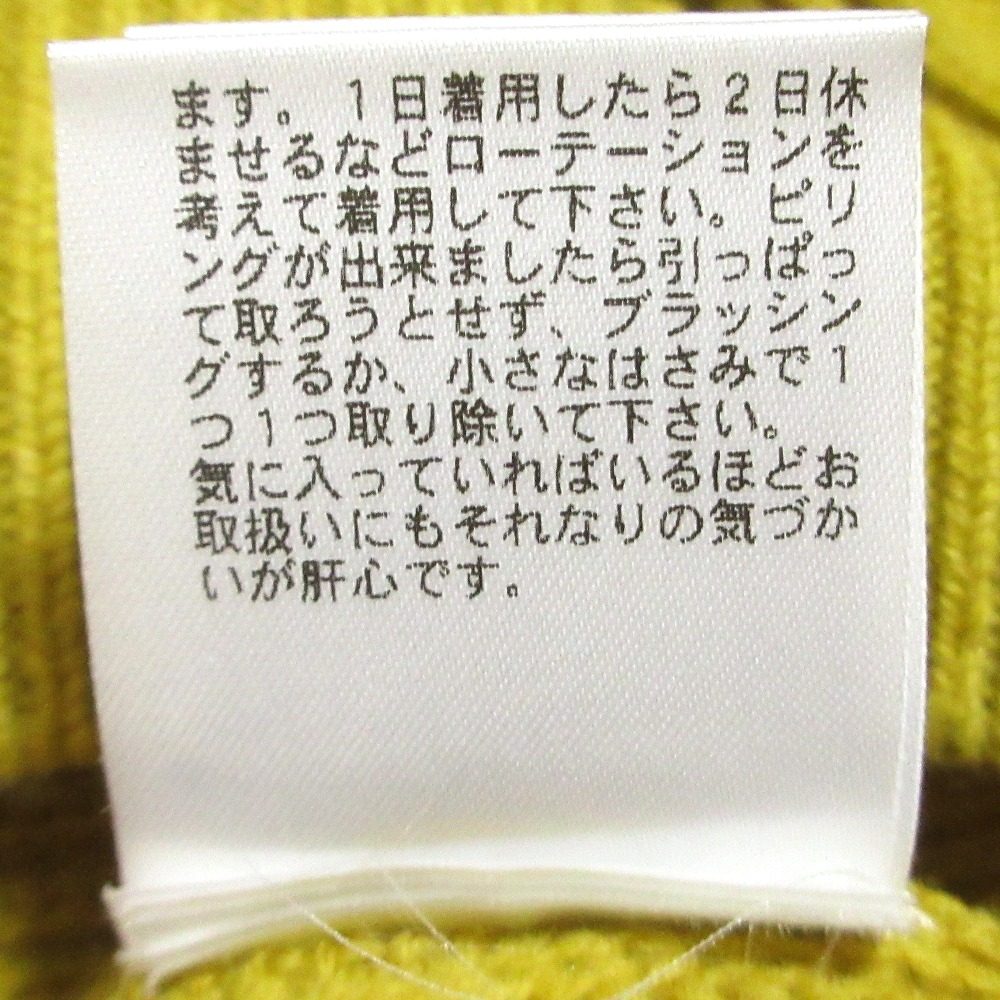 ます。1日着用したら2日休
ませるなどローテーションを
考えて着用して下さい。ピリ
ングが出来ましたら引っぱっ
て取ろうとせず、ブラッシン
グするか、小さなはさみで1
つ1つ取り除いて下さい。
気に入っていればいるほどお
取扱いにもそれなりの気づか
いが肝心です。